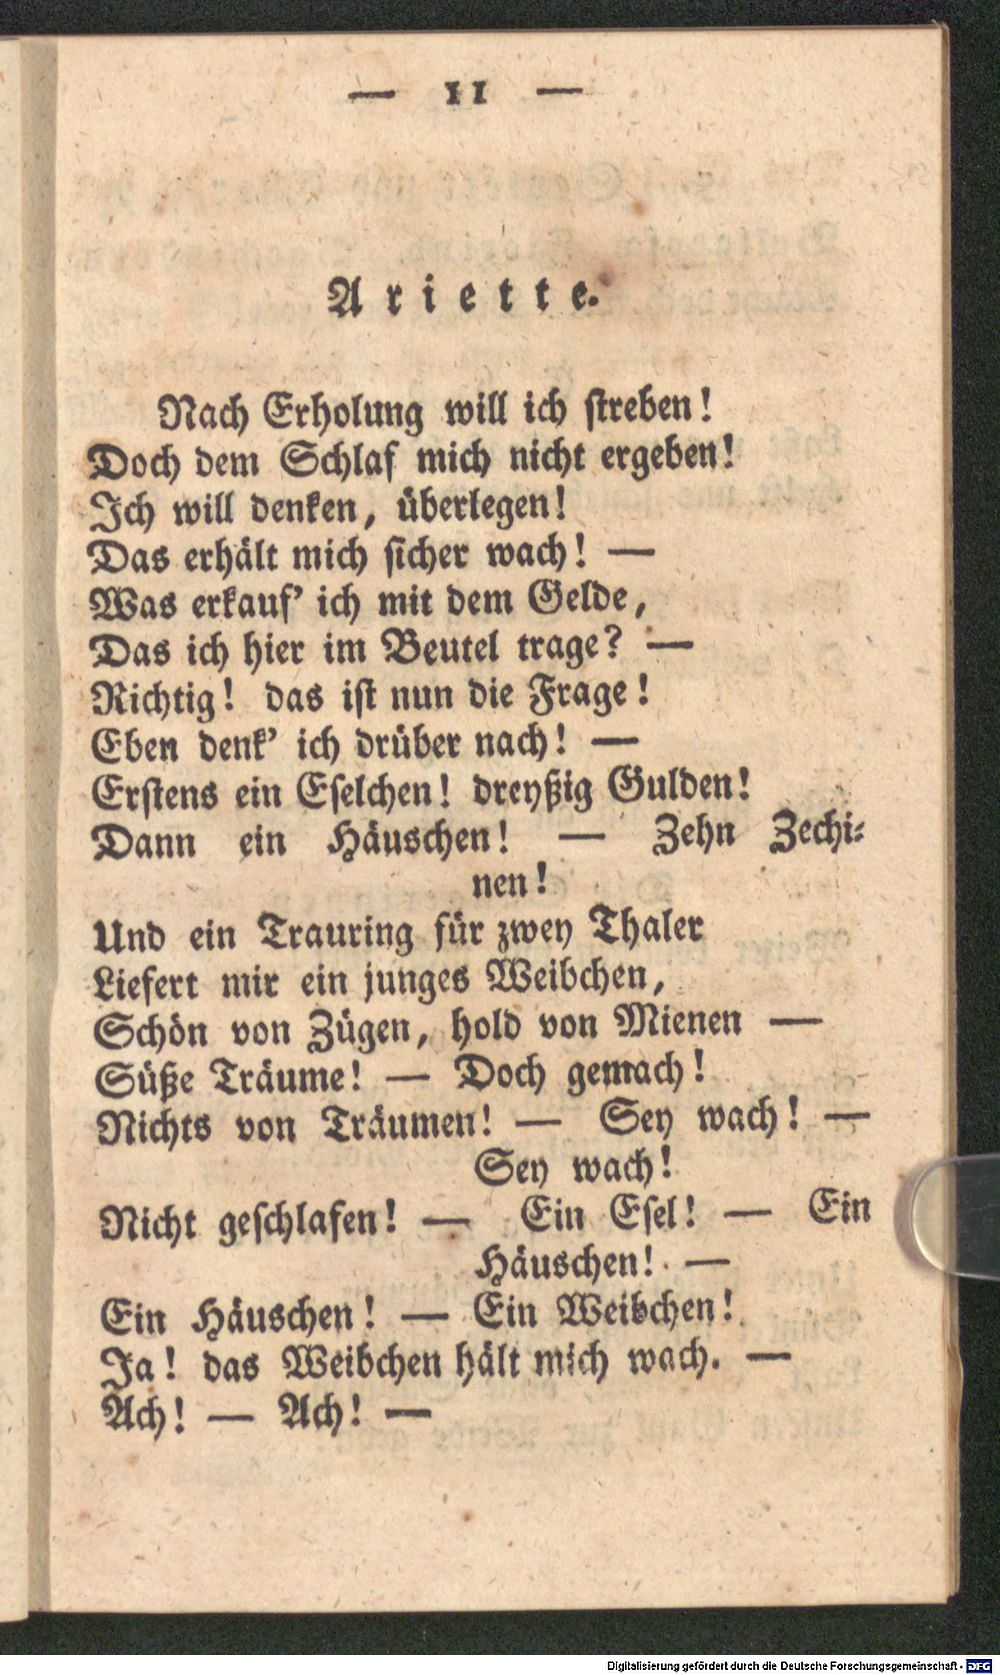 — 11 —
Ariette.
Nach Erholung will ich streben!
Doch dem Schlaf mich nicht ergeben!
Ich will denken, überlegen!
Das erhält mich sicher wach! —
Was erkauf' ich mit dem Gelde,
Das ich hier im Beutel trage? —
Richtig! das ist nun die Frage!
Eben denk' ich drüber nach! —
Erstens ein Eselchen! dreyßig Gulden!
Dann ein Häuschen! — Zehn Zechi-
nen!
Und ein Trauring für zwey Thaler
Liefert mir ein junges Weibchen,
Schön von Zügen, hold von Mienen —
Süße Träume! — Doch gemach!
Nichts von Träumen! — Sey wach! —
Sey wach!
Nicht geschlafen! — Ein Esel! — Ein
Häuschen! —
Ein Häuschen! — Ein Weibchen!
Ja! das Weibchen hält mich wach. —
Ach! — Ach! —
Digitalisierung gefördert durch die Deutsche Forschungsgemeinschaft - DFG